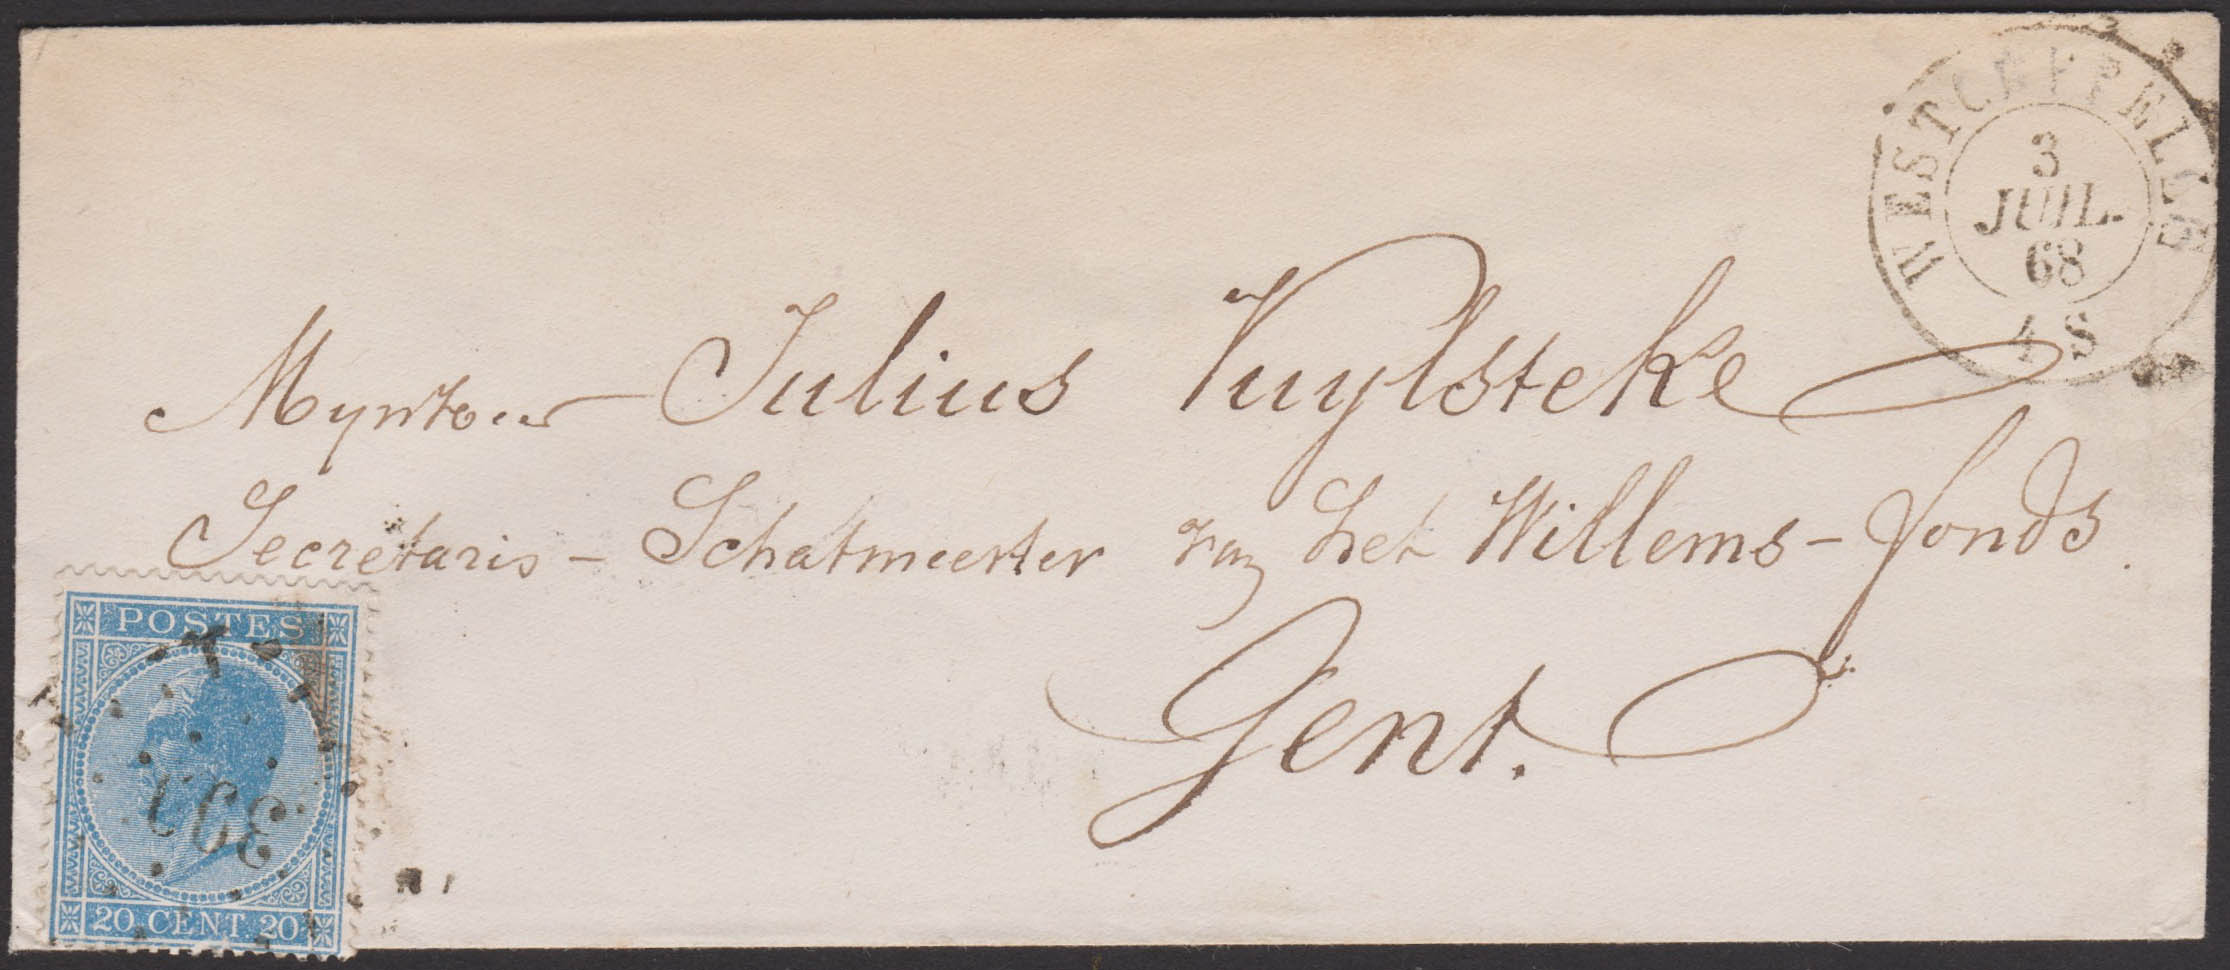 WESTCAPPELLE
3
JUIL.
68
4 S
Mynheer Julius Vuylsteke
Secretaris - Schatmeester van het Willems-fonds.
Gent.
POSTES
20 CENT. 20